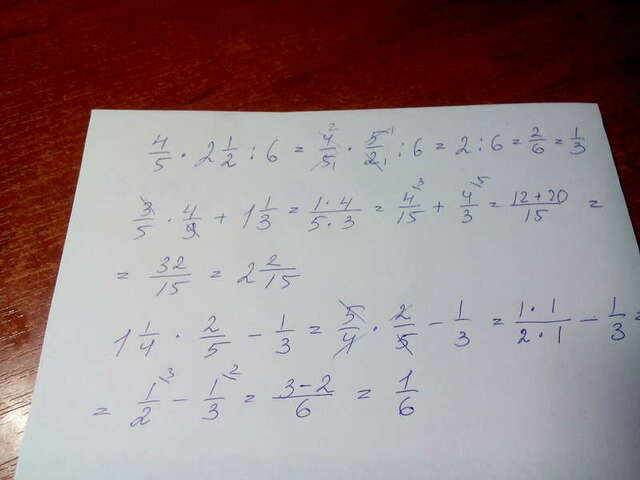 4/5 · 2 1/2 : 6 = 4/5 · 5/2 : 6 = 2 : 6 = 2/6 = 1/3
3/5 · 4/9 + 1 1/3 = 1·4/5·3 = 4/15 + 4/3 = 12+20/15 =
= 32/15 = 2 2/15
1 1/4 · 2/5 - 1/3 = 5/4 · 2/5 - 1/3 = 1·1/2·1 - 1/3 =
= 1/2 - 1/3 = 3-2/6 = 1/6